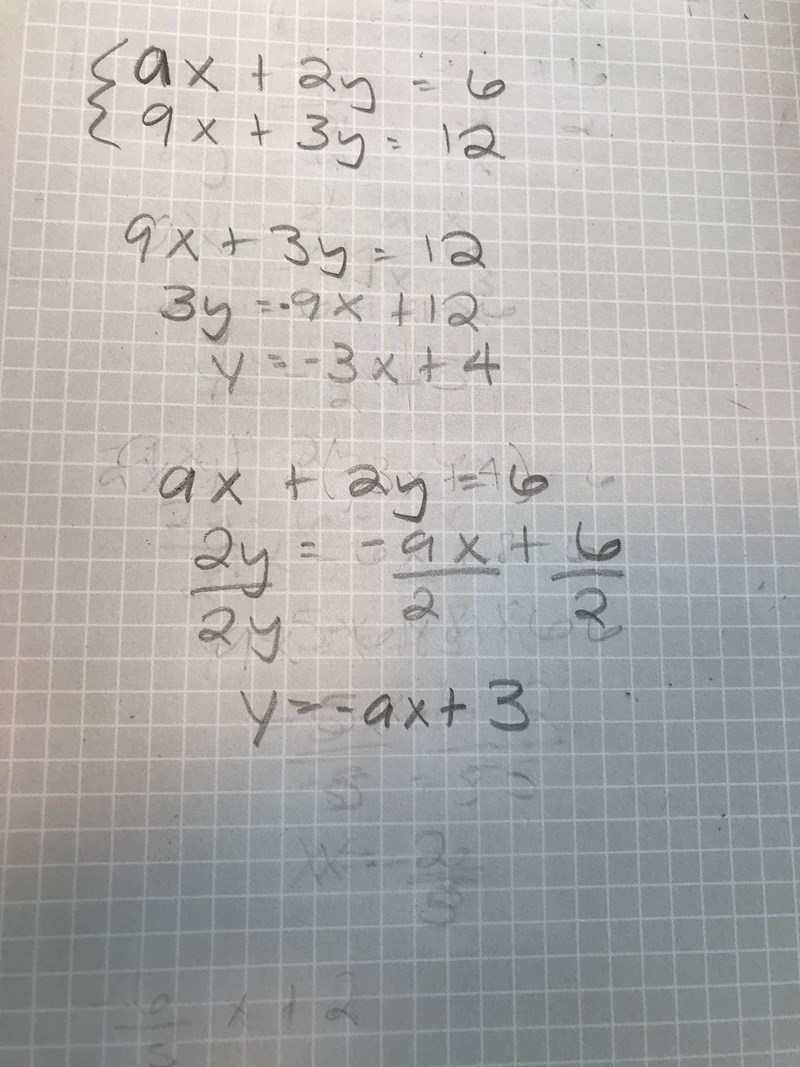 {ax + 2y = 6
9x + 3y = 12
9x + 3y = 12
3y = -9x + 12
y = -3x + 4
ax + 2y = 6
2y = -ax + 6
2y 2 2
y = -ax + 3
x = -2
x + 2